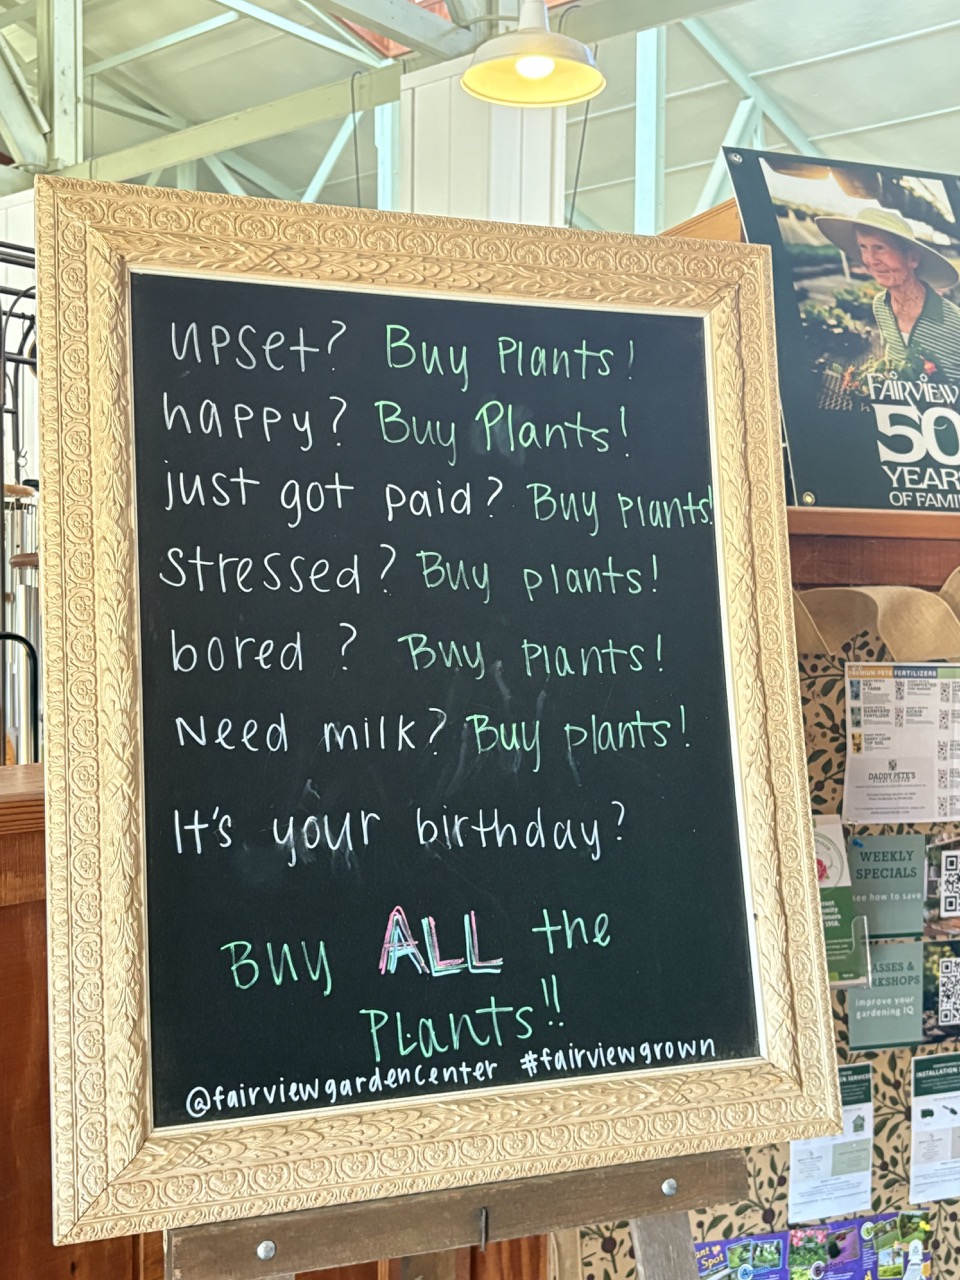 upset? Buy Plants!
happy? Buy Plants!
just got paid? Buy plants!
stressed? Buy plants!
bored? Buy plants!
Need milk? Buy plants!
It's your birthday?
Buy ALL the
Plants!!
@fairviewgardencenter #fairviewgrown
FAIRVIEW
50
YEARS
OF FAMI
PREMIUM PETE FERTILIZERS
DADDY PETE'S
WEEKLY
SPECIALS
see how to save
ASSES &
RKSHOPS
improve your
gardening IQ
INSTALLATION
ant
Spot